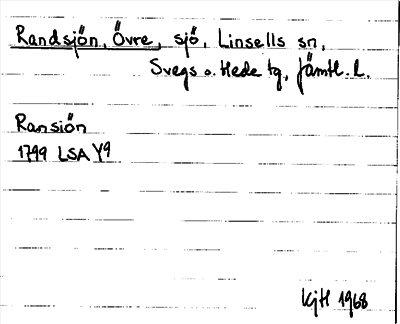 Randsjön, Övre, sjö, Linsells sn,
Svegs o. Hede tg, Jämtl. l.
Ransiön
1799 LSA Y9
KjH 1968